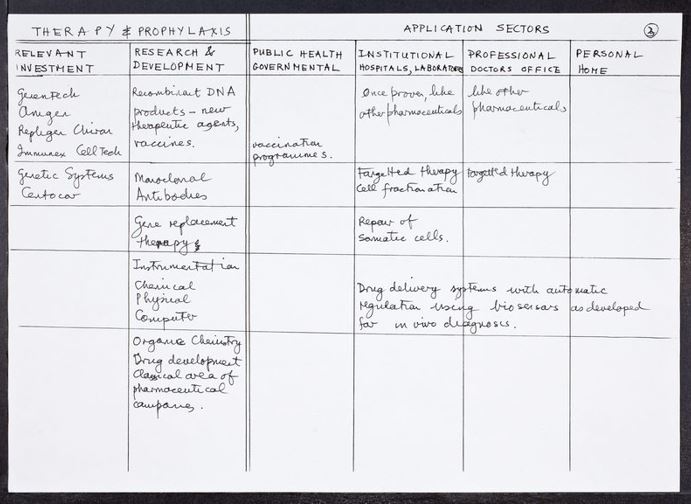 THERAPY & PROPHYLAXIS
APPLICATION SECTORS
2
RELEVANT
INVESTMENT
RESEARCH &
DEVELOPMENT
PUBLIC HEALTH
GOVERNMENTAL
INSTITUTIONAL
HOSPITALS, LABORATORIES
PROFESSIONAL
DOCTORS OFFICE
PERSONAL
HOME
Genentech
Amgen
Repligen Chiron
Immunex CellTech
Recombinant DNA
products – new
therapeutic agents,
vaccines.
vaccination
programmes.
Once proven, like
other pharmaceuticals
like other
pharmaceuticals
Genetic Systems
Centocor
Monoclonal
Antibodies
Targetted therapy
Cell fractionation
targetted therapy
Gene replacement
therapy
Repair of
Somatic cells.
Instrumentation
Chemical
Physical
Computer
Drug delivery systems with automatic
regulation using biosensors as developed
for in vivo diagnosis.
Organic Chemistry
Drug development
Classical area of
pharmaceutical
companies.